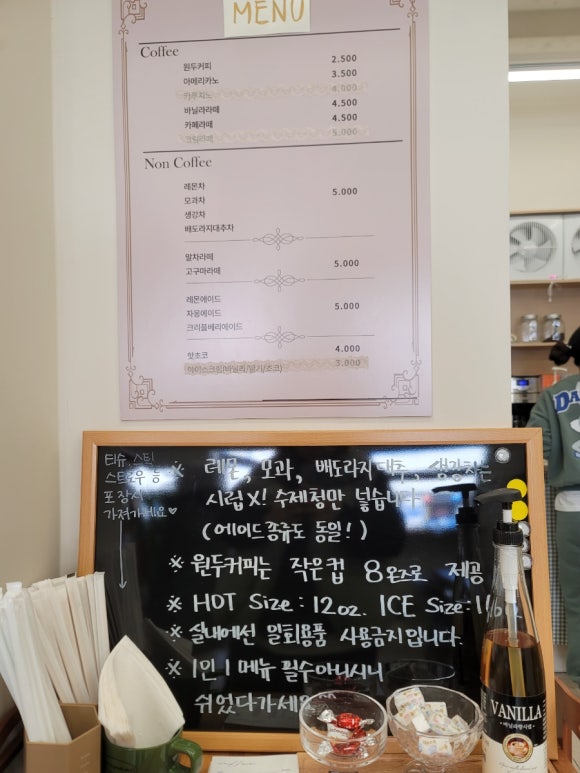 MENU
Coffee
원두커피 2.500
아메리카노 3.500
카푸치노 4.000
바닐라라떼 4.500
카페라떼 4.500
크림라떼 5.000
Non Coffee
레몬차
모과차 5.000
생강차
배도라지대추차
말차라떼
고구마라떼 5.000
레몬에이드
자몽에이드 5.000
크리풀베리에이드
핫초코 4.000
아이스크림(바닐라/딸기/초코) 3.000
티슈, 스틱
스트로우 등
포장시
가져가세요♥
※ 레몬, 모과, 배도라지대추, 생강차는
시럽X! 수제청만 넣습니다
(에이드 종류도 동일!)
※ 원두커피는 작은컵 8온즈로 제공
※ HOT Size : 12oz. ICE Size :
※ 실내에선 일회용품 사용금지입니다.
※ 1인 1메뉴 필수아니시니
쉬었다가세요
VANILLA
바닐라향시럽